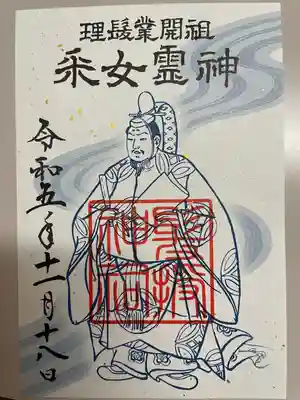 理髪業開祖
采女霊神
令和五年十一月十八日